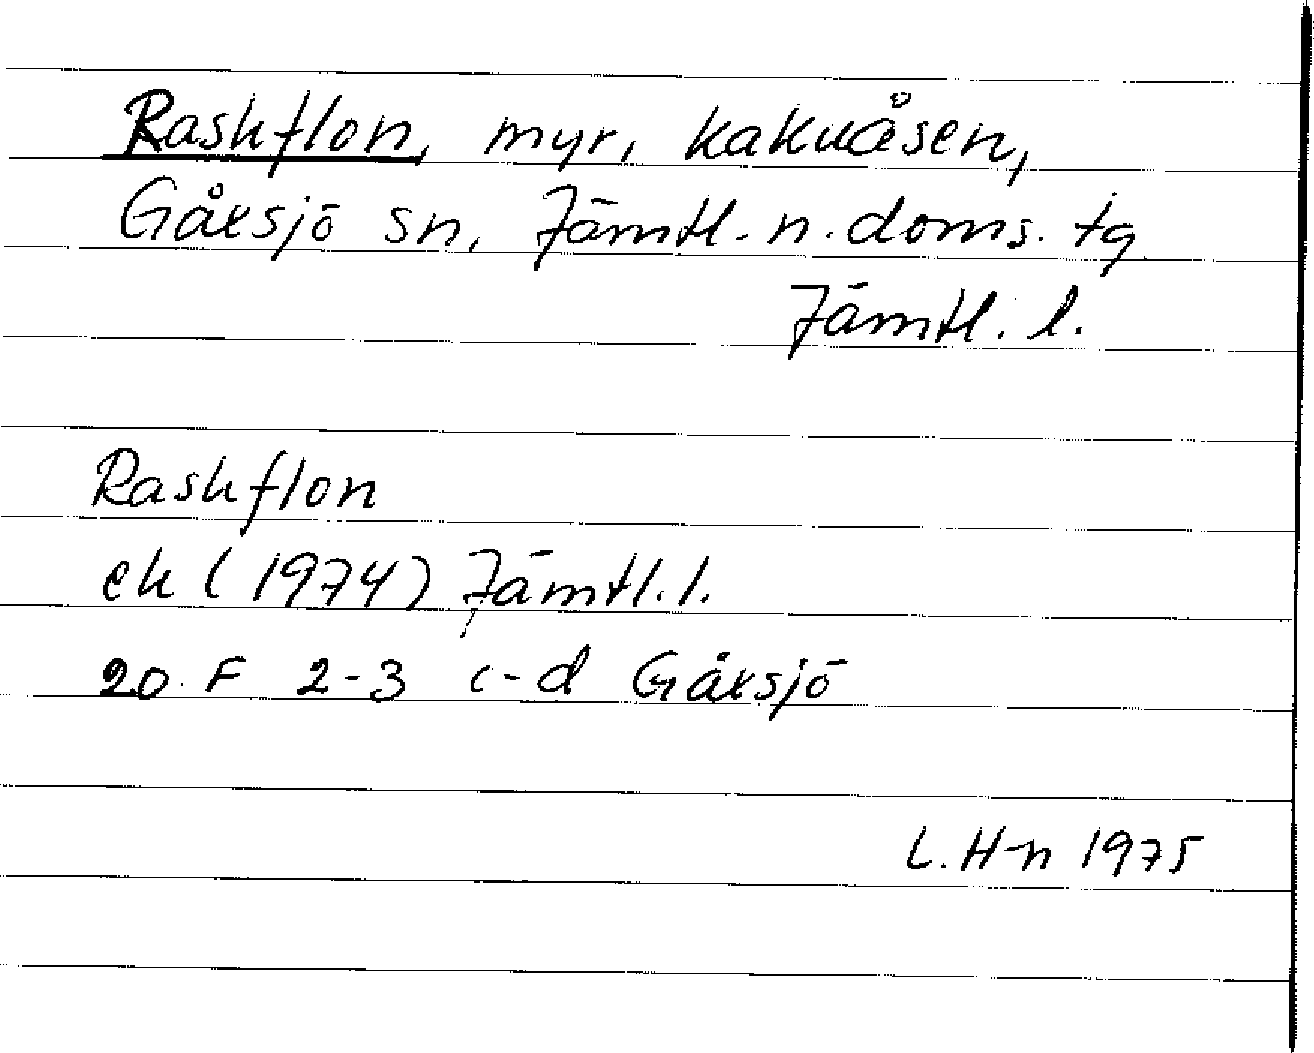 Raskflon, myr, Kakuåsen,
Gåxsjö sn, Jämtl. n. doms. tg
Jämtl. l.
Raskflon
ek (1974) Jämtl. l.
20 F 2-3 c-d Gåxsjö
L. H-n 1975